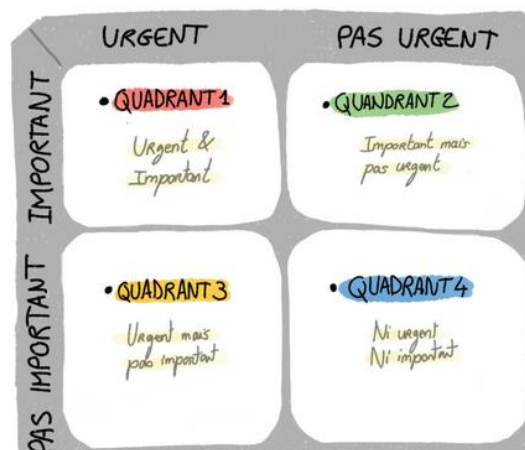 URGENT
PAS URGENT
IMPORTANT
• QUADRANT 1
Urgent &
Important
• QUANDRANT 2
Important mais
pas urgent
PAS IMPORTANT
• QUADRANT 3
Urgent mais
pas important
• QUADRANT 4
Ni urgent
Ni important